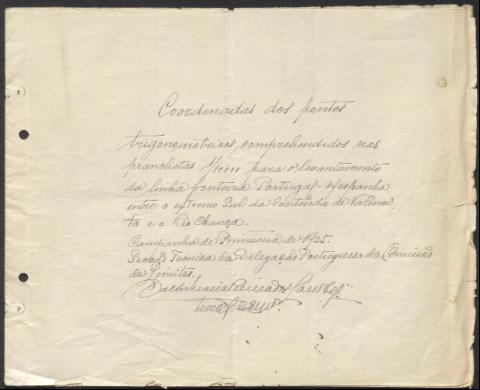 Coordenadas dos pontos
trigonometricos comprehendidos nas
pranchetas para o levantamento
da linha fronteira Portugal-Hespanha
entre o extremo Sul da Contenda de Valenci
ta e o Rio Chança.
Campanha de Primavera de 1925.
Secção Technica da Delegação Portuguesa da Comissão
de Limites.